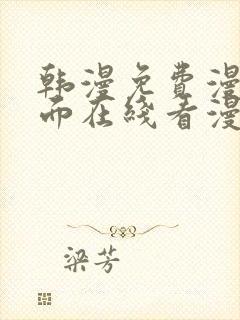 韩漫免费漫
面在线看漫
梁芳